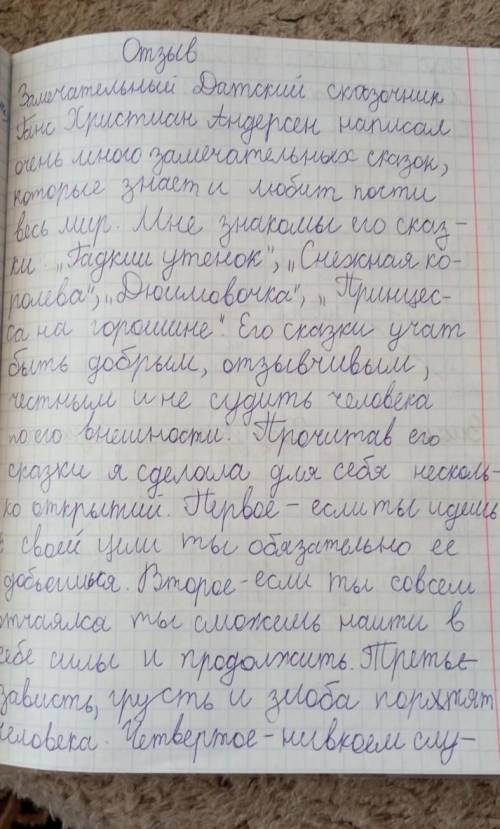 Отзыв
Замечательный Датский сказочник
Ганс Христиан Андерсен написал
очень много замечательных сказок,
которые знает и любит почти
весь мир. Мне знакомы его сказ-
ки „Гадкий утенок", „Снежная ко-
ролева", „Дюймовочка", „Принцес-
са на горошине". Его сказки учат
быть добрым, отзывчивым,
честным и не судить человека
по его внешности. Прочитав его
сказки я сделала для себя несколь-
ко открытий. Первое - если ты идешь
к своей цели ты обязательно ее
добьешься. Второе - если ты совсем
отчаялся ты сможешь найти в
себе силы и продолжить. Третье-
зависть, грусть и злоба портят
человека. Четвертое - ни в коем слу-